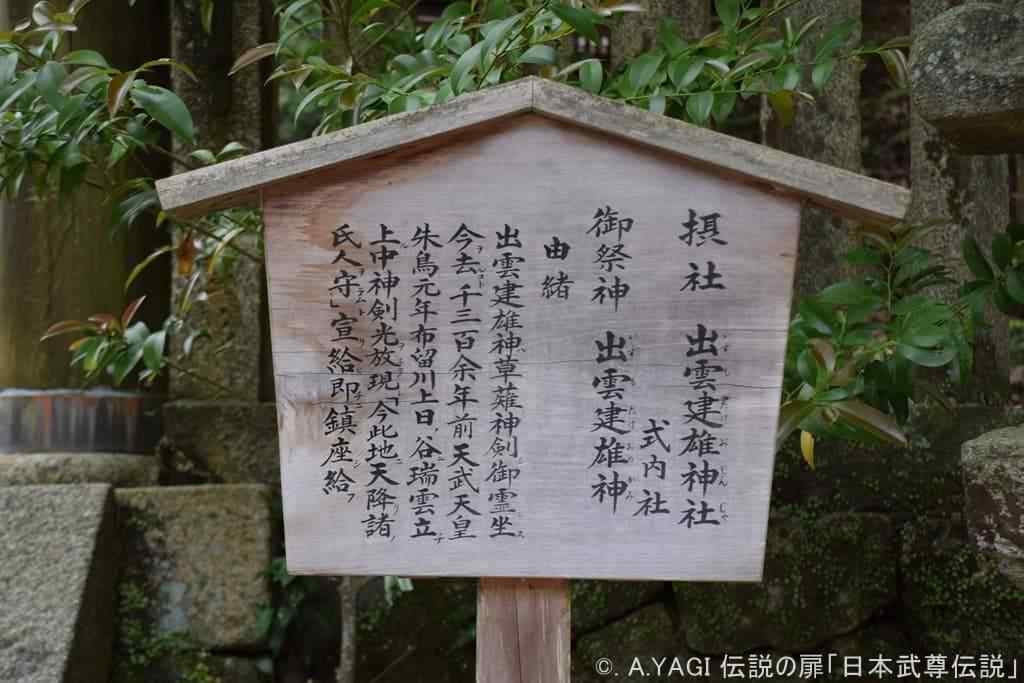 摂社 出雲建雄神社
式内社
御祭神 出雲建雄神
由緒
出雲建雄神草薙神剣御霊坐ス
今去ヲルコト千三百余年前天武天皇
朱鳥元年布留川上日ノ谷瑞雲立チ
上中神剣光放現「今此地ニ天降リ諸ノ
氏人守」宣給即鎮座給フ
©. A.YAGI 伝説の扉「日本武尊伝説」